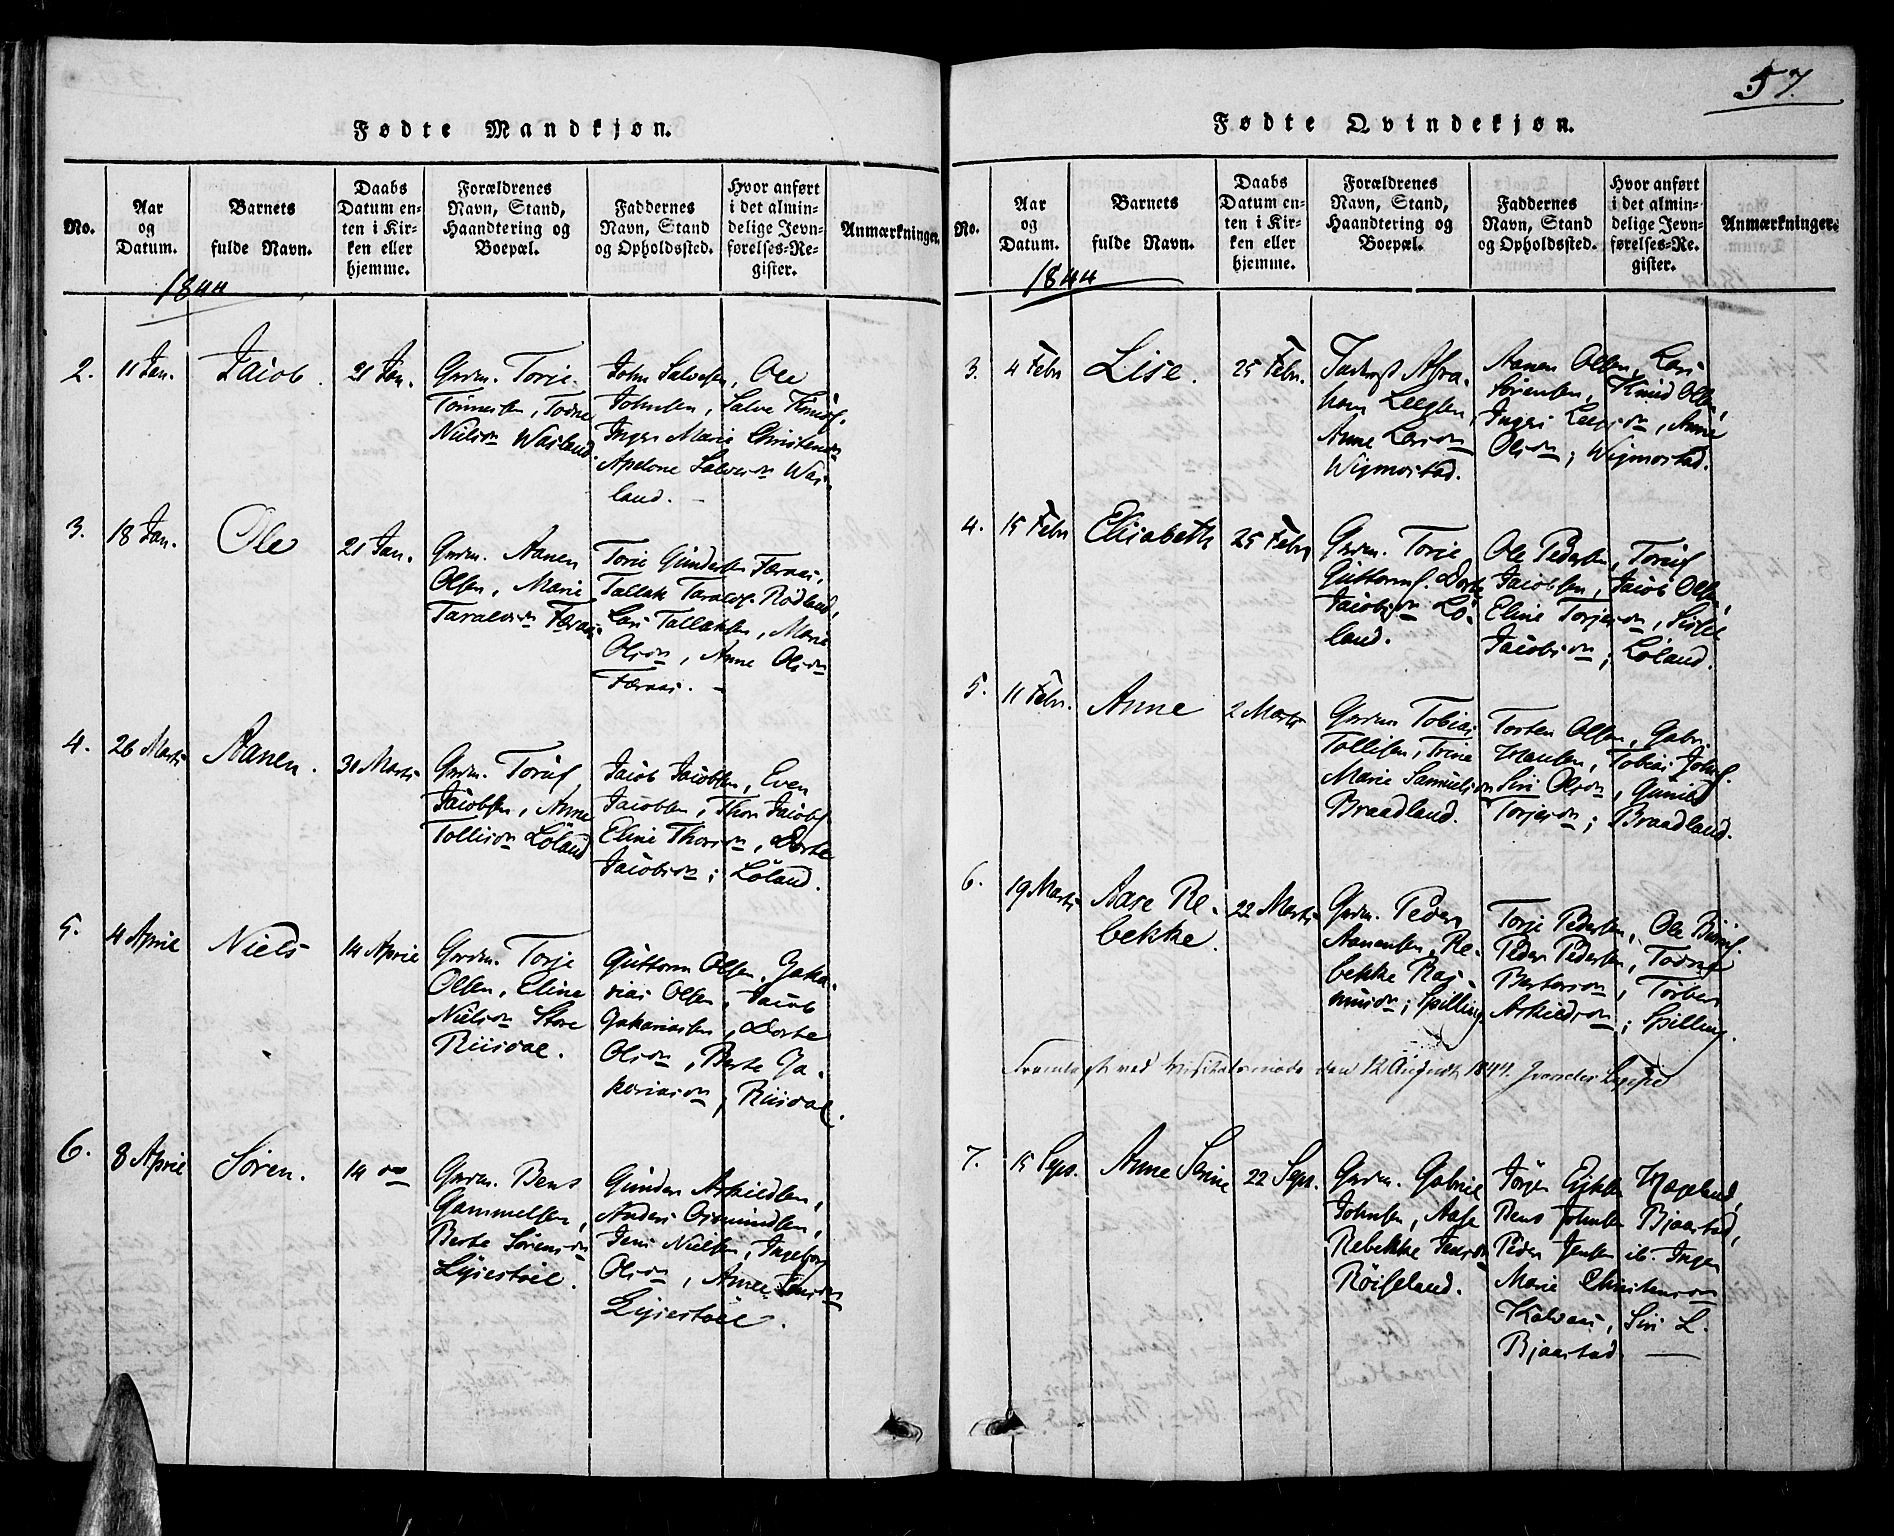 57.
Fødte Mandkjøn.
No.
Aar
og
Datum.
Barnets
fulde Navn.
Daabs
Datum en-
ten i Kir-
ken eller
hjemme.
Forældrenes
Navn, Stand,
Haandtering og
Boepæl.
Faddernes
Navn, Stand
og Opholdssted.
Hvor anført
i det almin-
delige Jevn-
førelses-Re-
gister.
Anmærkninger.
1844
2.
11 Jan.
Jacob.
21 Jan.
Gaardm. Torje
Tønnessen, Todne
Nielsdn Wasland.
John Salvesen, Ole
Johnsen, Salve Knuds.
Inger Marie Christensdn
Apelone Salvesdn Was-
land. -
3.
18 Jan.
Ole
21 Jan.
Gaardm. Aanen
Olsen, Marie
Taralvsdn Færaas.
Torje Gundersen Færaas,
Tallak Taralvs. Rødland,
Lars Tallaksen, Marie
Olsdn, Anne Olsdn
Færaas. -
4.
26 Marts
Aanen.
31 Marts
Gaardm. Torjus
Jacobsen, Anne
Tollisdn Løland
Jacob Jacobsen, Even
Jacobsen, Thor Jacobs.
Eline Thorsdn, Dorte
Jacobsdn; Løland.
5.
4 April
Niels
14 April
Gaardm. Torje
Olsen, Eline
Nielsdn Store
Riisdal.
Guttorm Olsen, Zaka-
rias Olsen, Jacob
Zakariassen, Dorte
Olsdn, Berte Za-
kariasdn, Riisdal.
6.
8 April
Søren.
14 do
Gaardm. Bens
Gammelsen,
Berte Sørensdn
Lyiestøel.
Gunder Askildsen,
Anders Osmundsen,
Jens Nielsen, Ingeborg
Olsdn, Anne Jensdn
Lyiestøel.
Fødte Qvindekjøn.
No.
Aar
og
Datum.
Barnets
fulde Navn.
Daabs
Datum en-
ten i Kir-
ken eller
hjemme.
Forældrenes
Navn, Stand,
Haandtering og
Boepæl.
Faddernes
Navn, Stand
og Opholdssted.
Hvor anført
i det almin-
delige Jevn-
førelses-Re-
gister.
Anmærkninger.
1844
3.
4 Febr
Lise.
25 Febr.
Abra-
ham
Anne Larsdn
Wigmostad.
Aanen Olsen, Lars
Sørensen, Knud Olsen,
Anne
Olsdn; Wigmostad.
4.
15 Febr
Elisabeth
25 Febr
Gaardm. Torje
Guttorms. Dorte
Jacobsdn Lø-
land.
Ole Pedersen, Torjus
Jacobsen, Jacob Olsen,
Eline Torjesdn, Sissel
Jacobsdn; Løland.
5.
11 Febr.
Anne
2 Marts
Gaardm Tobias
Tollisen, Trine
Marie Samuelsdn
Braadland.
Torsten Olsen, Gabr.
Hansen, Tobias Johns.
Siri Olsdn, Gunild
Torjesdn; Braadland.
6.
19 Marts
Aase Re-
bekke.
22 Marts
Gaardm. Peder
Aanensen, Re-
bekke Ras-
musdn; Spilling.
Torje Pedersen, Ole
Peder Pedersen, Todne
Torbor
Askildsdn; Spilling.
Fremlagt ved Visitatsmøde den 12 August 1844.
7.
15 Sept.
Anne Serine
22 Sept.
Gaardm. Gabriel
Johnsen, Aase
Rebekke Jensdn
Røiseland.
Jørgen Eyksen Høgeland,
Bens Johnsen Bjaastad,
Peder Jensen ib. Inger
Marie Christensdn
Kalvaas, Siri L.
Bjaastad. —